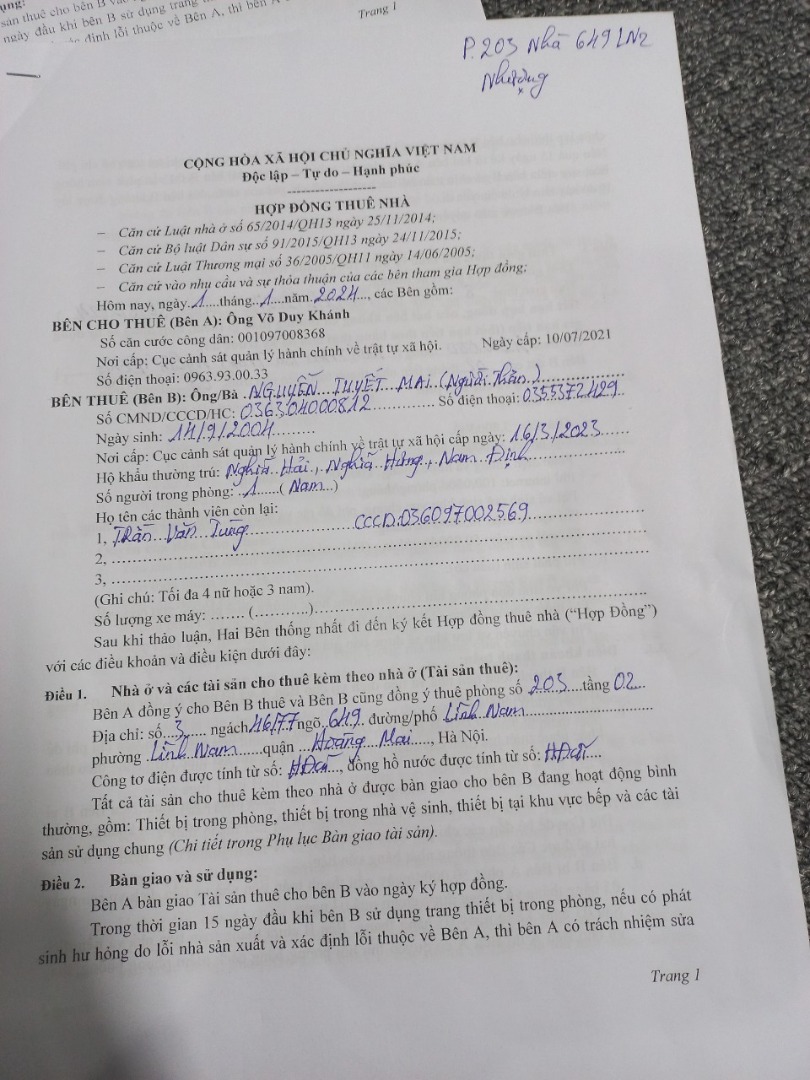 sản thuê cho bên B
ngày đầu khi bên B sử dụng trang
định lỗi thuộc về Bên A, thì bên A
Trang 1
P.203 Nhà 649 LN2
Nhượng
CỘNG HÒA XÃ HỘI CHỦ NGHĨA VIỆT NAM
Độc lập – Tự do – Hạnh phúc
--------------------
HỢP ĐỒNG THUÊ NHÀ
– Căn cứ Luật nhà ở số 65/2014/QH13 ngày 25/11/2014;
– Căn cứ Bộ luật Dân sự số 91/2015/QH13 ngày 24/11/2015;
– Căn cứ Luật Thương mại số 36/2005/QH11 ngày 14/06/2005;
– Căn cứ vào nhu cầu và sự thỏa thuận của các bên tham gia Hợp đồng;
Hôm nay, ngày 1 tháng 1 năm 2024, các Bên gồm:
BÊN CHO THUÊ (Bên A): Ông Võ Duy Khánh
Số căn cước công dân: 001097008368
Nơi cấp: Cục cảnh sát quản lý hành chính về trật tự xã hội. Ngày cấp: 10/07/2021
Số điện thoại: 0963.93.00.33
BÊN THUÊ (Bên B): Ông/Bà NGUYỄN TUYẾT MAI (Người Thân)
Số CMND/CCCD/HC: 036304000812 Số điện thoại: 0355372429
Ngày sinh: 14/9/2004
Nơi cấp: Cục cảnh sát quản lý hành chính về trật tự xã hội cấp ngày: 16/3/2023
Hộ khẩu thường trú: Nghĩa Hải, Nghĩa Hưng, Nam Định
Số người trong phòng: 1 (Nam)
Họ tên các thành viên còn lại:
1, Trần Văn Tùng CCCD.036097002569
2,
3,
(Ghi chú: Tối đa 4 nữ hoặc 3 nam).
Số lượng xe máy: ....... (...........)
Sau khi thảo luận, Hai Bên thống nhất đi đến ký kết Hợp đồng thuê nhà (“Hợp Đồng”)
với các điều khoản và điều kiện dưới đây:
Điều 1. Nhà ở và các tài sản cho thuê kèm theo nhà ở (Tài sản thuê):
Bên A đồng ý cho Bên B thuê và Bên B cũng đồng ý thuê phòng số 203 tầng 02
Địa chỉ: số 3 ngách 16/77 ngõ 649 đường/phố Lĩnh Nam
phường Lĩnh Nam quận Hoàng Mai, Hà Nội.
Công tơ điện được tính từ số: , đồng hồ nước được tính từ số:
Tất cả tài sản cho thuê kèm theo nhà ở được bàn giao cho bên B đang hoạt động bình
thường, gồm: Thiết bị trong phòng, thiết bị trong nhà vệ sinh, thiết bị tại khu vực bếp và các tài
sản sử dụng chung (Chi tiết trong Phụ lục Bàn giao tài sản).
Điều 2. Bàn giao và sử dụng:
Bên A bàn giao Tài sản thuê cho bên B vào ngày ký hợp đồng.
Trong thời gian 15 ngày đầu khi bên B sử dụng trang thiết bị trong phòng, nếu có phát
sinh hư hỏng do lỗi nhà sản xuất và xác định lỗi thuộc về Bên A, thì bên A có trách nhiệm sửa
Trang 1